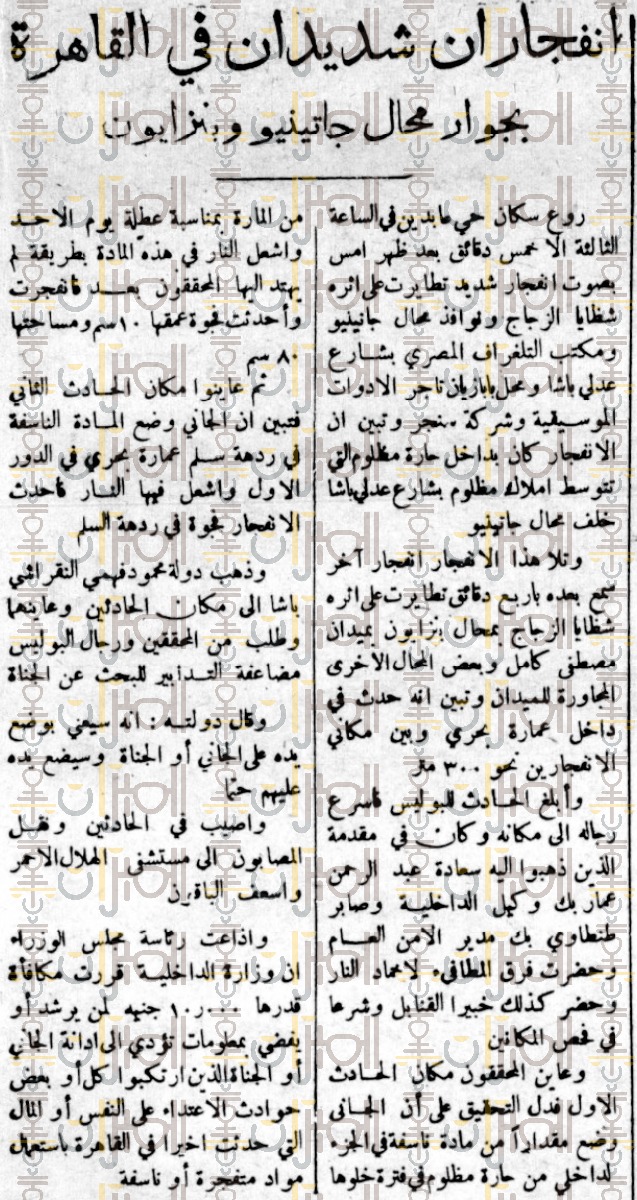 انفجاران شديدان في القاهرة
بجوار محال جاتينيو وبنزايون
روع سكان حي عابدين في الساعة
الثالثة الا خمس دقائق بعد ظهر امس
بصوت انفجار شديد تطايرت على اثره
شظايا الزجاج ونوافذ محال جاتينيو
ومكتب التلغراف المصري بشارع
عدلي باشا ومحل بابازيان تاجر الادوات
الموسيقية وشركة سنجر وتبين ان
الانفجار كان بداخل حارة مظلوم التي
تتوسط املاك مظلوم بشارع عدلي باشا
خلف محال جاتينيو
وتلا هذا الانفجار انفجار آخر
سمع بعده باربع دقائق تطايرت على اثره
شظايا الزجاج بمحال بنزايون بميدان
مصطفى كامل وبعض المحال الاخرى
المجاورة للميدان وتبين انه حدث في
داخل عمارة بحري وبين مكاني
الانفجارين نحو ٣٠٠ متر
وأبلغ الحادث للبوليس فاسرع
رجاله الى مكانه وكان في مقدمة
الذين ذهبوا اليه سعادة عبد الرحمن
عمار بك وكيل الداخلية وصابر
طنطاوي بك مدير الامن العام
وحضرت فرق المطافيء لاخماد النار
وحضر كذلك خبيرا القنابل وشرعا
في فحص المكانين
وعاين المحققون مكان الحادث
الاول فدل التحقيق على أن الجاني
وضع مقداراً من مادة ناسفة في الجزء
لداخلي من حارة مظلوم في فترة خلوها
من المارة بمناسبة عطلة يوم الاحد
واشعل النار في هذه المادة بطريقة لم
يهتد اليها المحققون بعد فانفجرت
وأحدثت فجوة عمقها ١٠ سم ومساحتها
٨٠ سم
ثم عاينوا مكان الحادث الثاني
فتبين ان الجاني وضع المادة الناسفة
في ردهة سلم عمارة بحري في الدور
الاول واشعل فيها النار فاحدث
الانفجار فجوة في ردهة السلم
وذهب دولة محمود فهمي النقراشي
باشا الى مكان الحادثين وعاينهما
وطلب من المحققين ورجال البوليس
مضاعفة التدابير للبحث عن الجناة
وقال دولته : انه سيعني بوضع
يده على الجاني أو الجناة وسيضع يده
عليهم حتما
واصيب في الحادثين ونقل
المصابون الى مستشفى الهلال الاحمر
واسعف الباقون
واذاعت رئاسة مجلس الوزراء
ان وزارة الداخلية قررت مكافأة
قدرها ١٠,٠٠٠ جنيه لمن يرشد أو
يفضي بمعلومات تؤدي الى ادانة الجاني
أو الجناة الذين ارتكبوا كل أو بعض
حوادث الاعتداء على النفس أو المال
التي حدثت اخيرا في القاهرة باستعمال
مواد متفجرة أو ناسفة